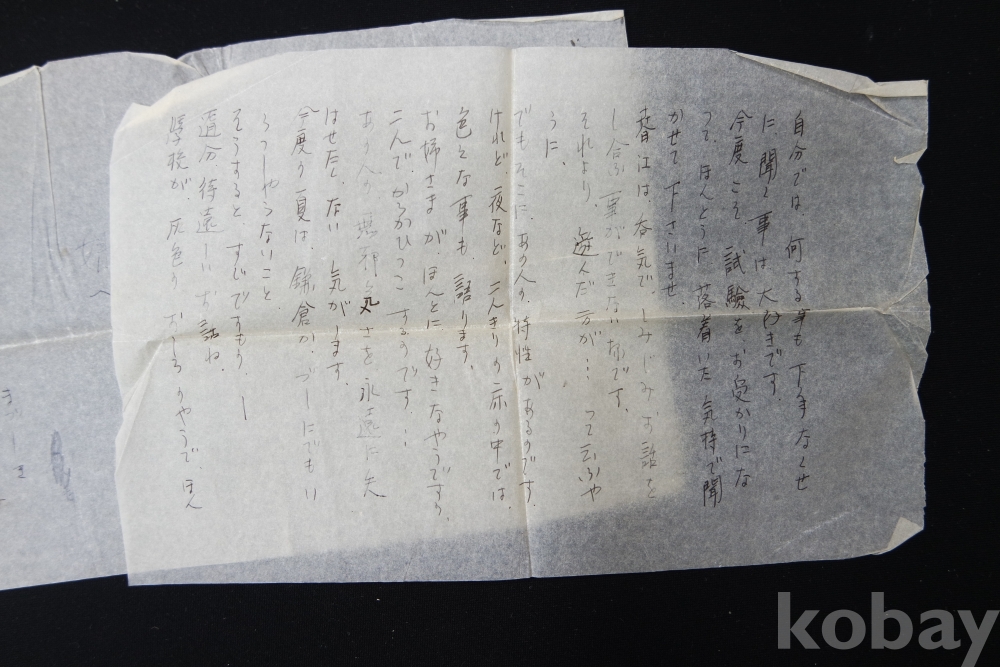 自分では、何する事も下手なくせ
に聞く事は大好きです。
今度こそ試験をお受かりにな
って、ほんとうに落着いた気持で聞
かせて下さいませ。
春江は、呑気で、しみじみお話を
し合ふ事ができないなです。
それより、遊んだ方が…って云ふや
うに、
でもそこに、あの人の特性があるのです。
けれど、夜など、二人きりの床の中では、
色々な事も、語ります。
お姉さまが、ほんとに好きなやうですり、
二人で、からかひっこするのです…
あの人の無邪気さを永遠に失
はせたくない気がします。
今度の夏は、鎌倉か、づしにでもい
らっしやらないこと
そうすると、すじですもの。
随分待遠しいお話ね。
学校が、灰色のおしろのやうで、ほん
kobay